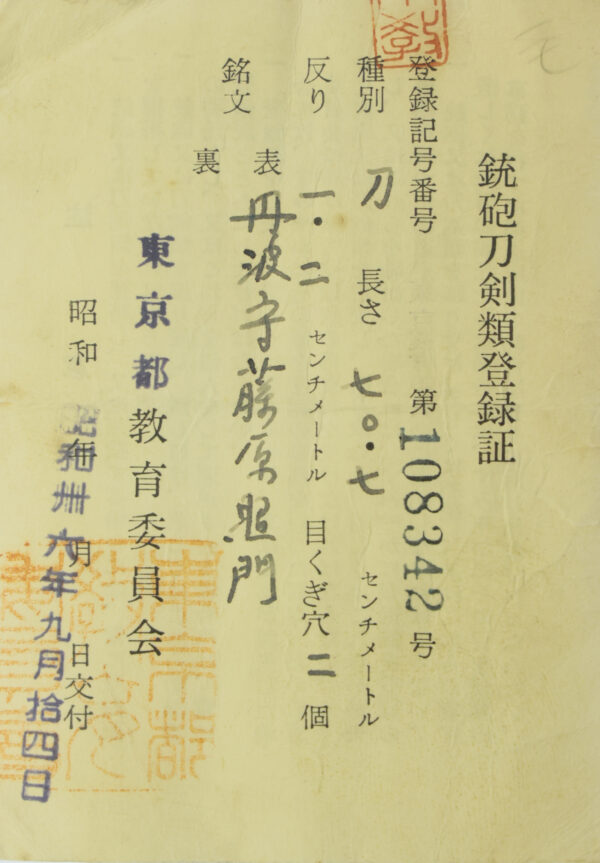 銃砲刀剣類登録証
登録記号番号 第108342号
種別 刀 長さ 七〇・七 センチメートル
反り 一・二 センチメートル 目くぎ穴 二 個
銘文 表 丹波守藤原照門
裏
東京都教育委員会
昭和 年 月 日交付
昭和卅六年九月拾四日